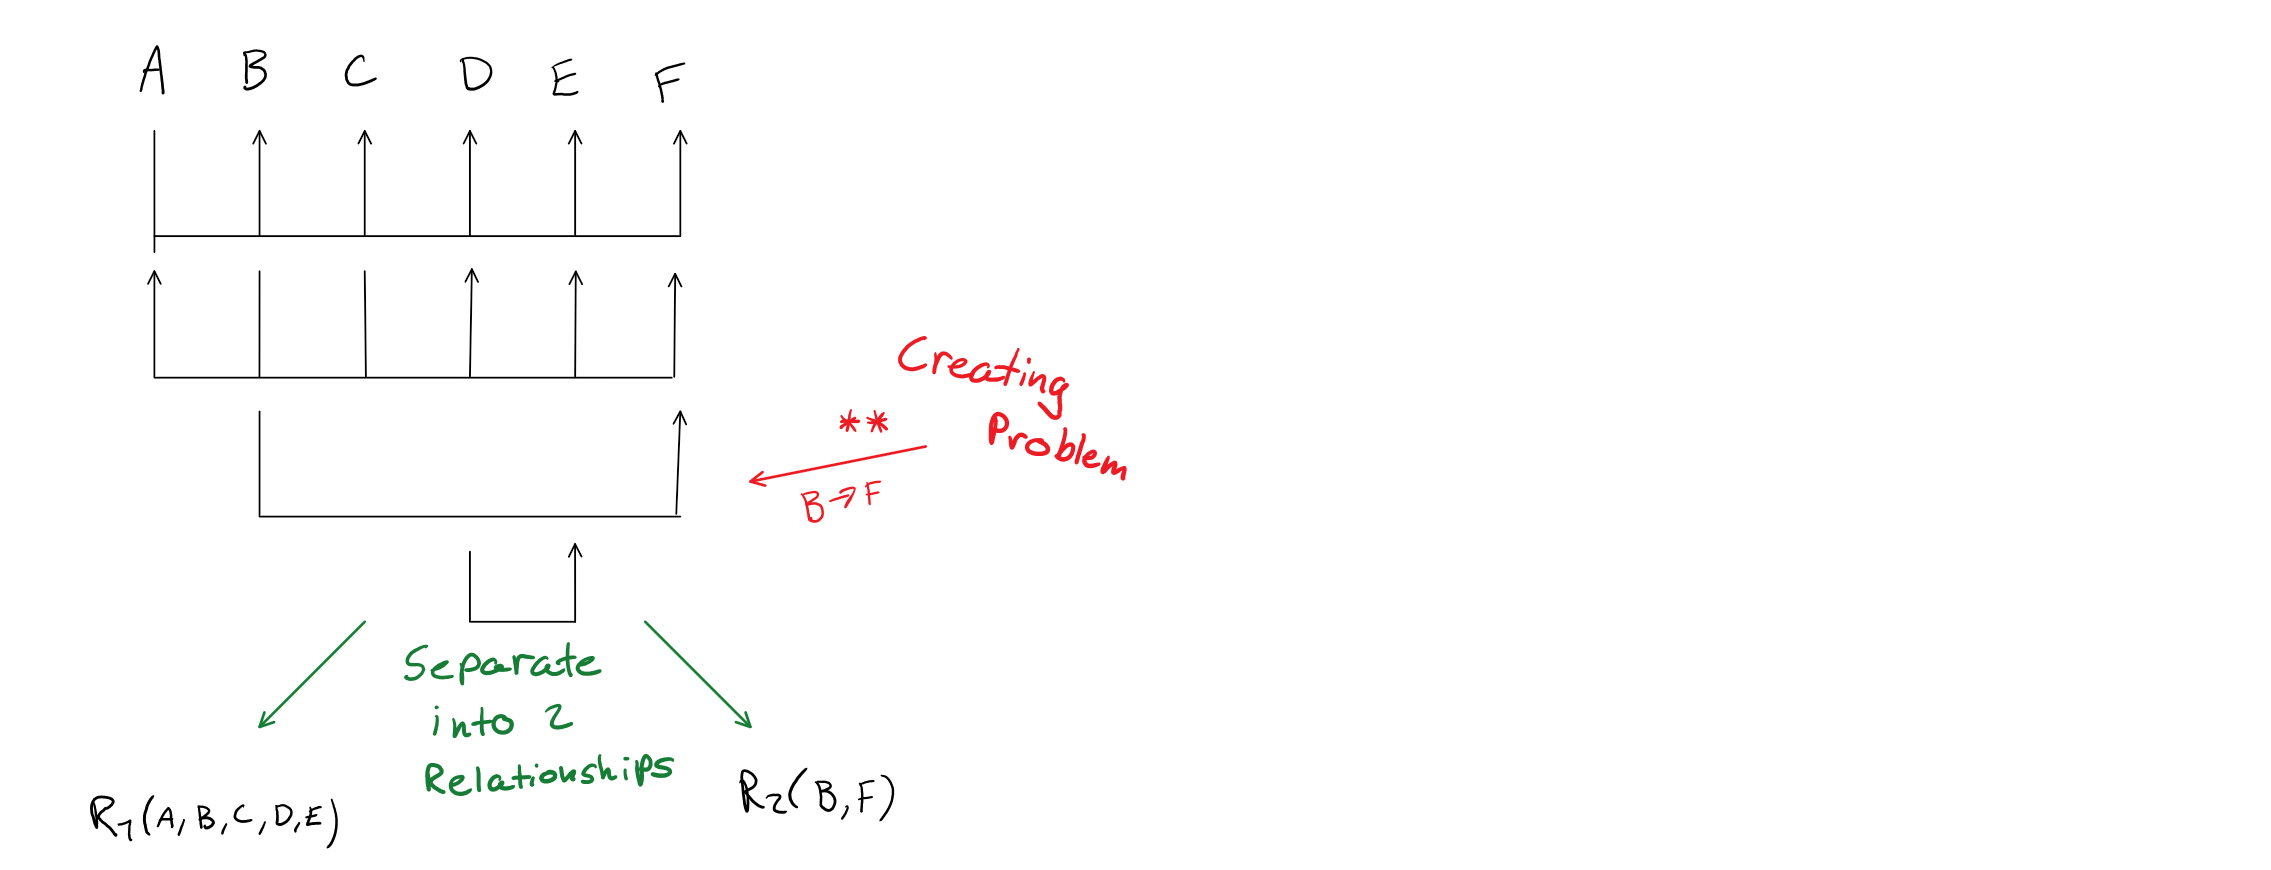 A B C D E F
Creating
Problem
**
B→F
Separate
into 2
Relationships
R1(A,B,C,D,E)
R2(B,F)